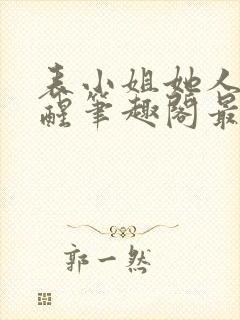 表小姐她人
醒笔趣阁最
郭一然